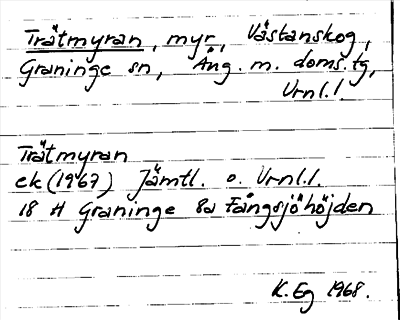 Trätmyran, myr, Västanskog,
Graninge sn, Ång. m. doms.tg,
Vrnl.l.
Trätmyran
ek (1967) Jämtl. o. Vrnl.l.
18 H Graninge 8a Fångsjöhöjden
K. Eg 1968.